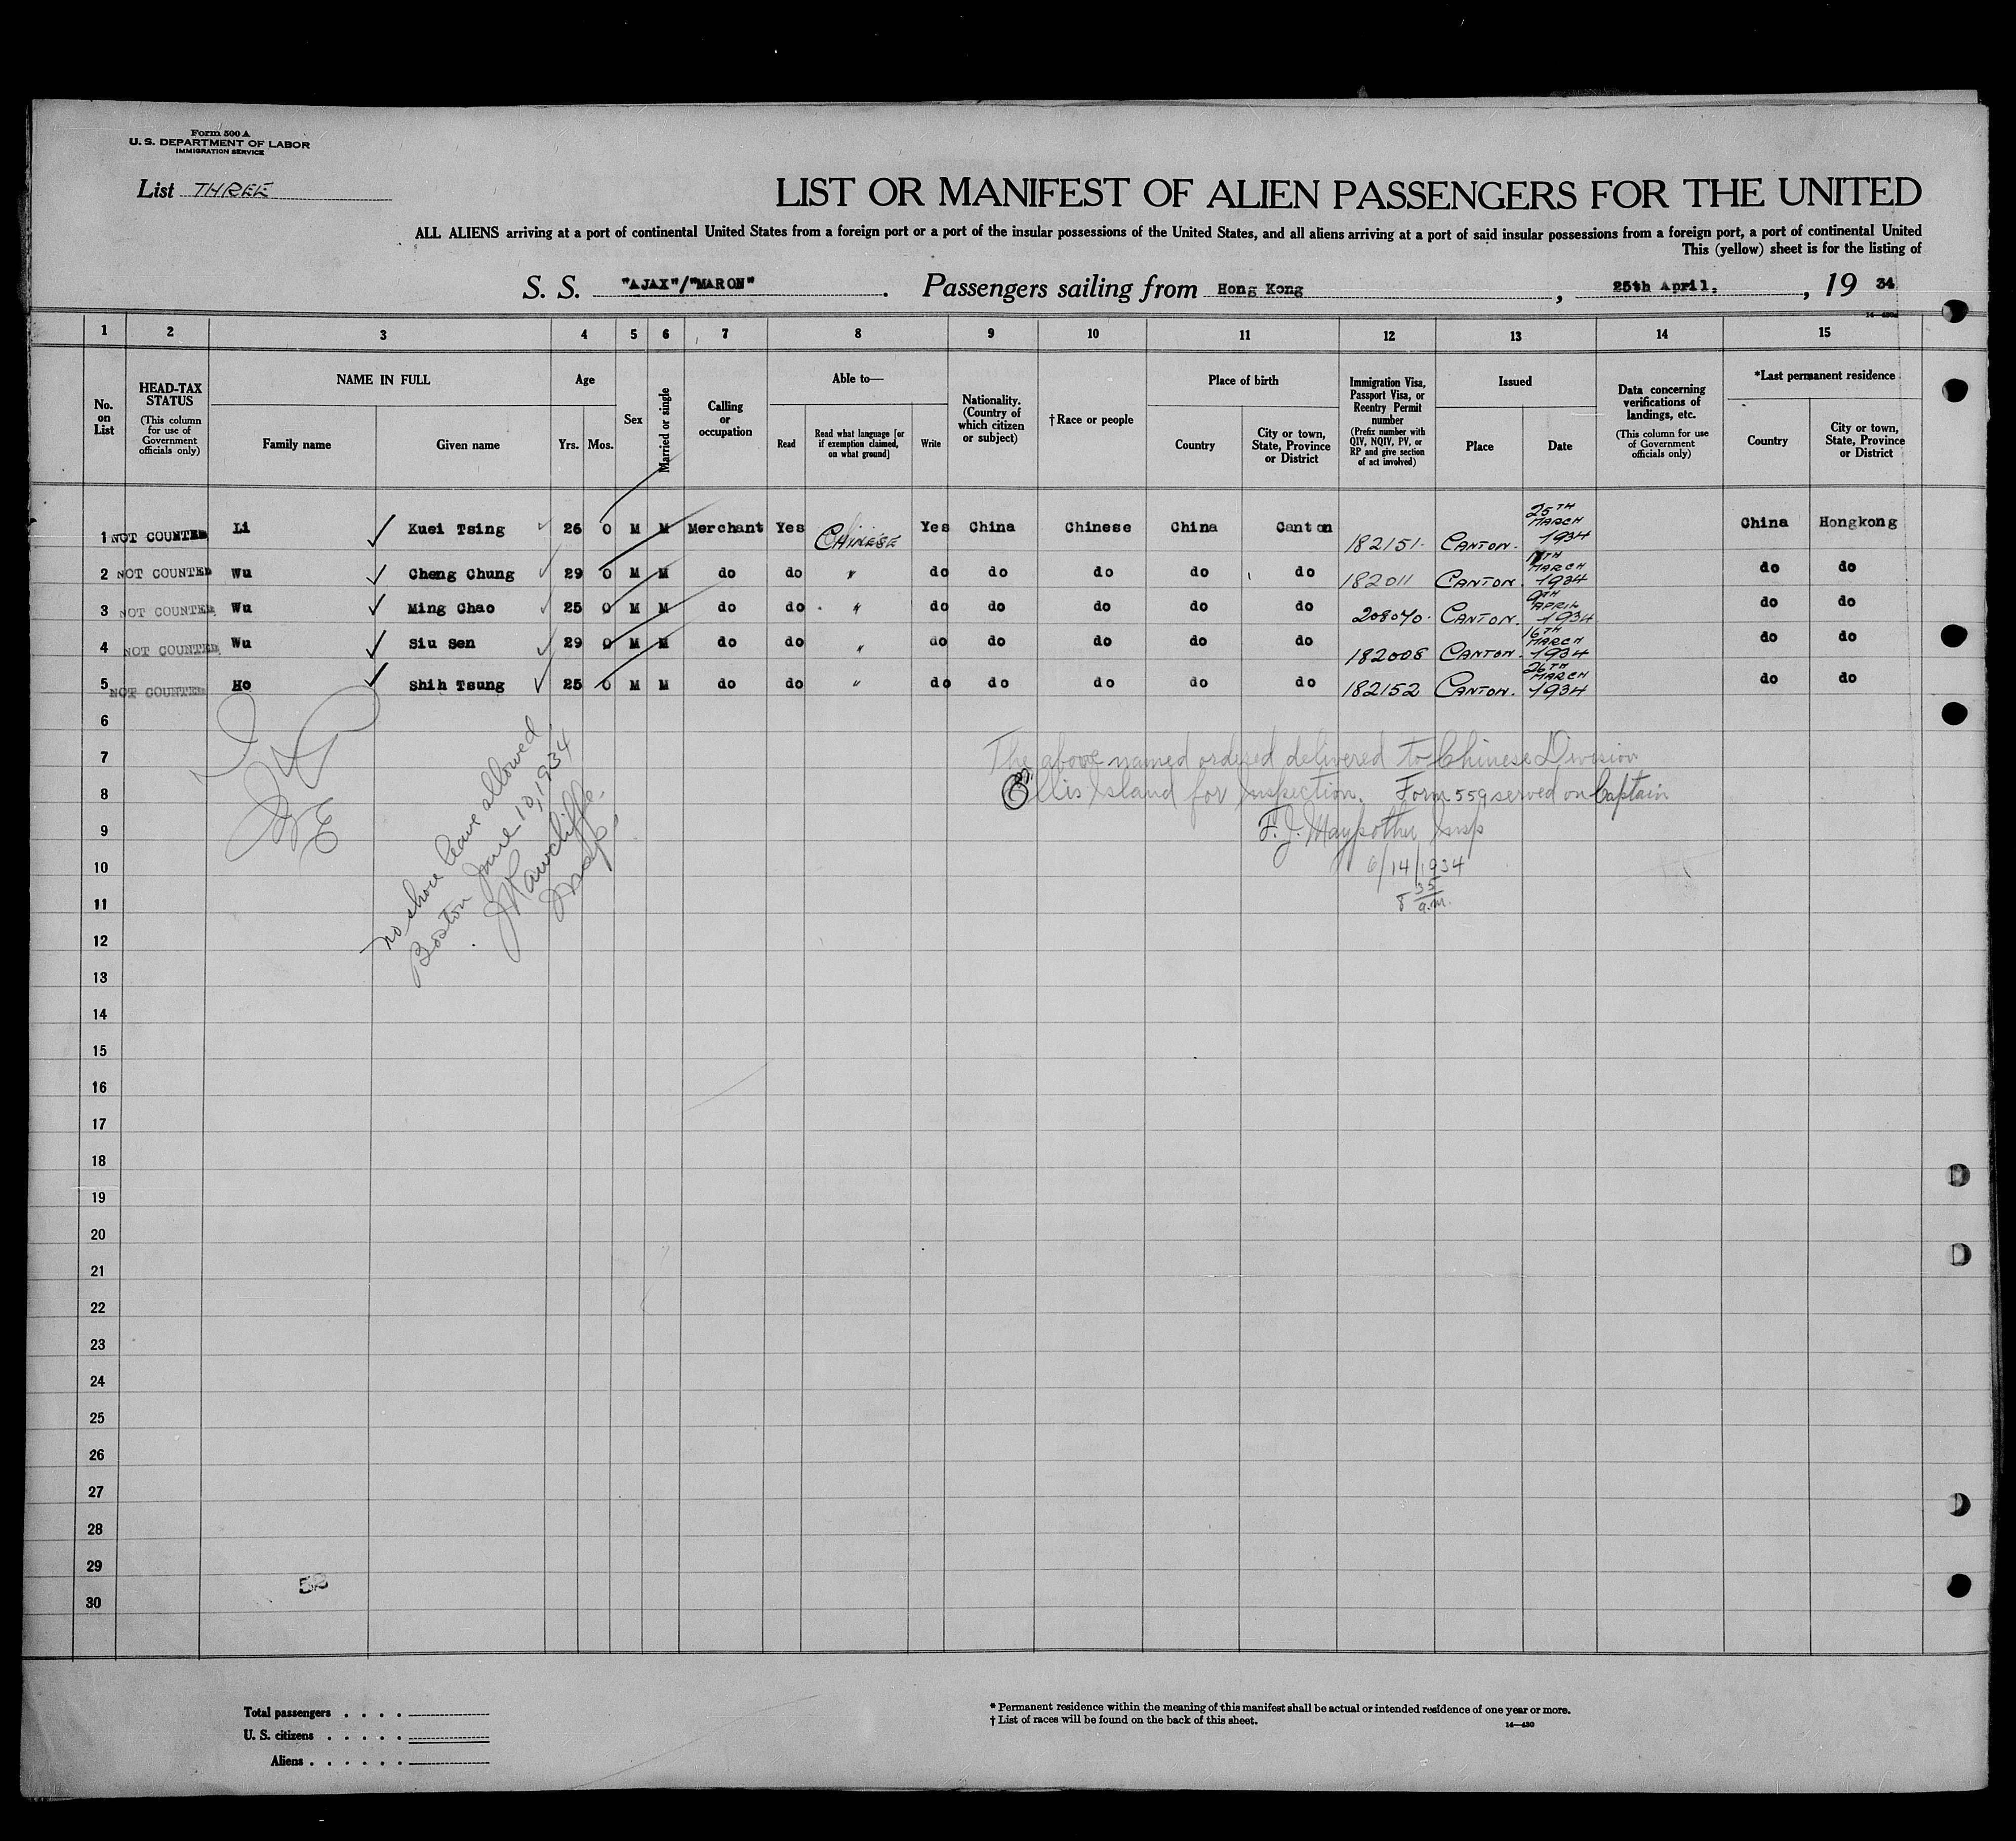 Form 500 A
U. S. DEPARTMENT OF LABOR
IMMIGRATION SERVICE
List THREE
LIST OR MANIFEST OF ALIEN PASSENGERS FOR THE UNITED
ALL ALIENS arriving at a port of continental United States from a foreign port or a port of the insular possessions of the United States, and all aliens arriving at a port of said insular possessions from a foreign port, a port of continental United
This (yellow) sheet is for the listing of
S. S. "AJAX"/"MARON". Passengers sailing from Hong Kong, 25th April, , 19 34
1 2 3 4 5 6 7 8 9 10 11 12 13 14 15
No. on List
HEAD-TAX STATUS (This column for use of Government officials only)
NAME IN FULL
Family name Given name
Age
Yrs. Mos.
Sex
Married or single
Calling or occupation
Able to—
Read Read what language [or if exemption claimed, on what ground] Write
Nationality. (Country of which citizen or subject)
†Race or people
Place of birth
Country City or town, State, Province or District
Immigration Visa, Passport Visa, or Reentry Permit number (Prefix number with QIV, NQIV, PV, or RP and give section of act involved)
Issued
Place Date
Data concerning verifications of landings, etc. (This column for use of Government officials only)
*Last permanent residence
Country City or town, State, Province or District
1 NOT COUNTED Li Kuei Tsing 26 0 M M Merchant Yes CHINESE Yes China Chinese China Canton 182151. CANTON. 25TH MARCH 1934 China Hongkong
2 NOT COUNTED Wu Cheng Chung 29 0 M M do do " do do do do do 182011 CANTON. MARCH 1934 do do
3 NOT COUNTED Wu Ming Chao 25 0 M M do do " do do do do do 208070. CANTON. 9TH APRIL 1934 do do
4 NOT COUNTED Wu Siu Sen 29 0 M M do do " do do do do do 182008 CANTON. 16TH MARCH 1934 do do
5 NOT COUNTED Ho Shih Tsung 25 0 M M do do " do do do do do 182152 CANTON. 26TH MARCH 1934 do do
6
7
8
9
10
11
12
13
14
15
16
17
18
19
20
21
22
23
24
25
26
27
28
29
30
no shore leave allowed
Boston June 10, 1934
Insp.
The above named ordered delivered to Chinese Division
Ellis Island for Inspection. Form 559 served on Captain
F. J. Maypother Insp
6/14/1934
8 35 a.m.
52
Total passengers . . . .
U. S. citizens . . . . .
Aliens . . . . . .
* Permanent residence within the meaning of this manifest shall be actual or intended residence of one year or more.
† List of races will be found on the back of this sheet. 14—430